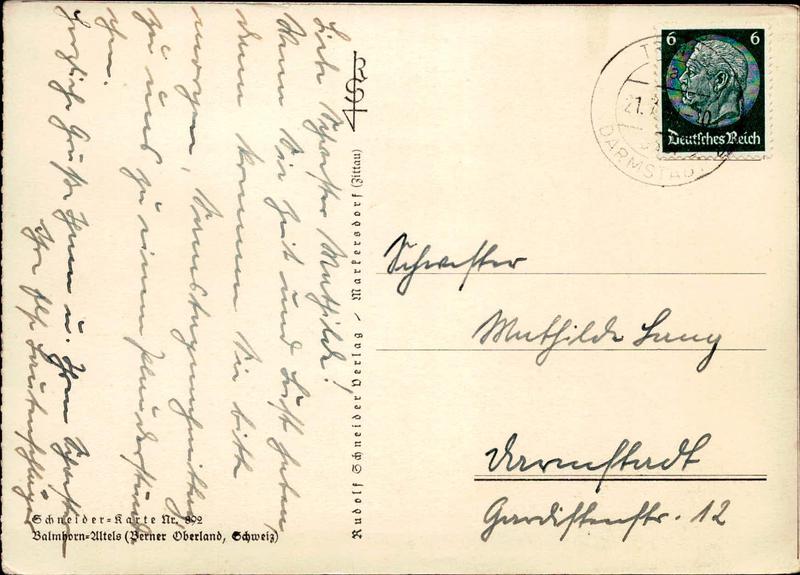 Liebe Schwester Mathilde!
Wenn Sie Zeit und Lust haben,
dann kommen Sie bitte
morgen, Samstagnachmittag
zu uns zu einem Plauderstünd-
chen.
Herzliche Grüße Ihnen u. Ihren Schwestern
Ihre
Schneider-Karte Nr. 892
Balmhorn-Altels (Berner Oberland, Schweiz)
Rudolf Schneider Verlag / Markersdorf (Zittau)
6 6
Deutsches Reich
21.
DARMSTADT
Schwester
Mathilde Lang
Darmstadt
Gardistenstr. 12